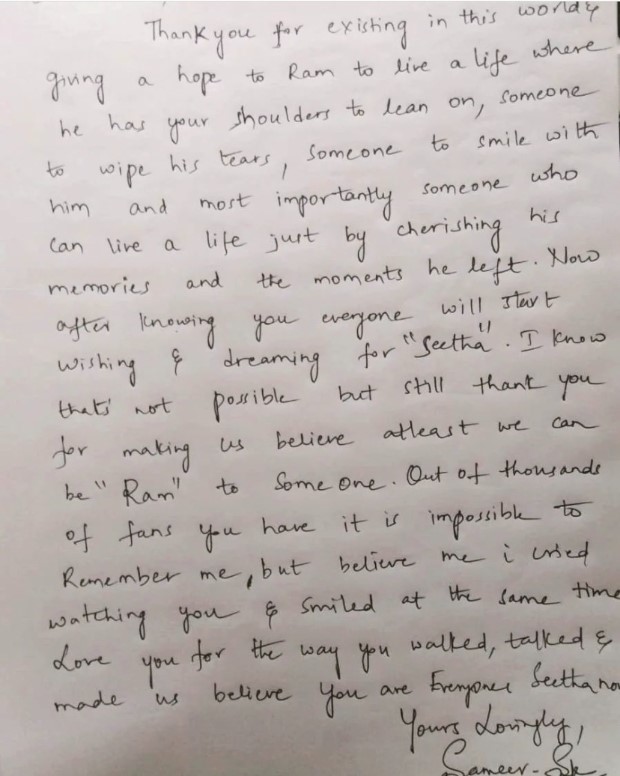 Thank you for existing in this world &
giving a hope to Ram to live a life where
he has your shoulders to lean on, someone
to wipe his tears, someone to smile with
him and most importantly someone who
can live a life just by cherishing his
memories and the moments he left. Now
after knowing you everyone will start
wishing & dreaming for "Seetha". I know
thats' not possible but still thank you
for making us believe atleast we can
be "Ram" to Some one. Out of thousands
of fans you have it is impossible to
Remember me, but believe me i cried
watching you & smiled at the same time
Love you for the way you walked, talked &
made us believe you are Everyones Seetha now
Yours Lovingly,
Sameer-Sk